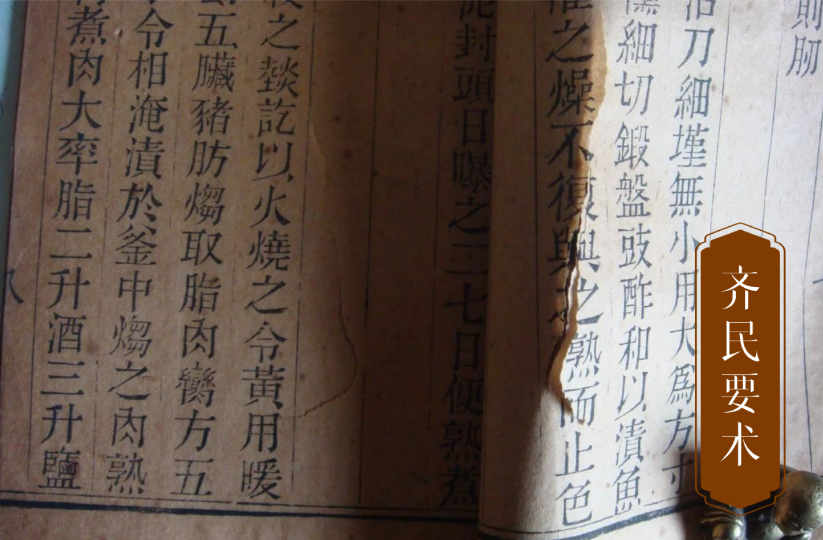 則
刀細墐無小用大爲方寸
細切鍛盤豉酢和以漬魚
之燥不復與之熟而止色
泥封頭日曝之二七日便熟煮
之燅訖以火燒之令黃用暖
五臟豬肪煼取脂肉臠方五
令相淹漬於釜中煼之肉熟
煮肉大率脂二升酒三升鹽
齐民要术